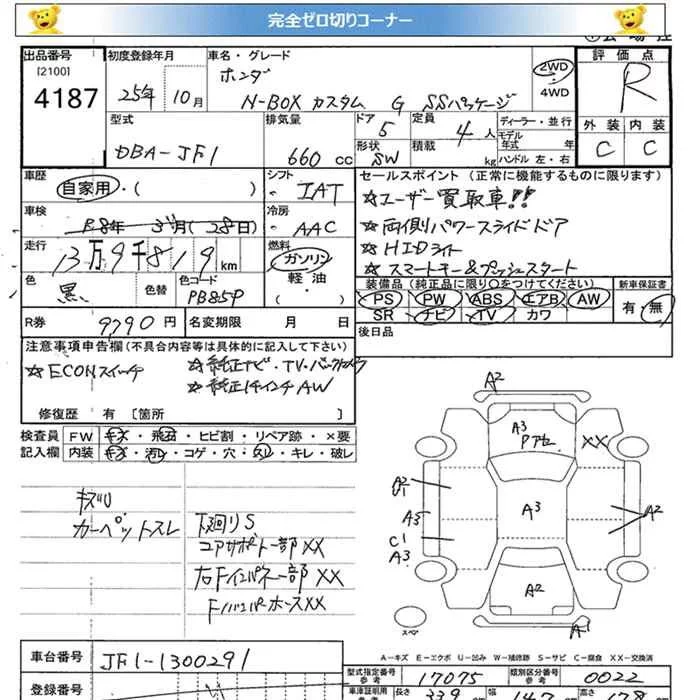 完全ゼロ切りコーナー
出品番号 初度登録年月 車名・グレード 評価点
[2100] ホンダ 2WD
4187 25年 10月 N-BOX カスタム G SSパッケージ 4WD R
型式 排気量 ドア 定員 ディーラー・並行 外装 内装
DBA-JF1 660 cc 5 4人 モデル年式 年 C C
形状 SW 積載 kg ハンドル 左・右
車歴 シフト セールスポイント (正常に機能するものに限ります)
自家用・( ) IAT ☆ユーザー買取車!!
車検 冷房 ☆両側パワースライドドア
R8年 3月 (28日) AAC ☆HIDライト
走行 燃料 ☆スマートキー&プッシュスタート
13万9千819km ガソリン
軽油
色 色替 色コード 装備品 (純正品に限り○をつけてください) 新車保証書
黒 PB85P ( ) PS PW ABS エアB AW 有 無
SR ナビ TV カワ
R券 9790円 名変期限 月 日 後日品
注意事項申告欄 (不具合内容等は具体的に記入して下さい)
☆ECONスイッチ ☆純正ナビ・TV・バックカメラ
☆純正14インチAW
修復歴 有 [箇所 ]
検査員 FW キズ・飛石・ヒビ割・リペア跡・×要
記入欄 内装 キズ・汚レ・コゲ・穴・スレ・キレ・破レ
A2
A3
XX
キズU
カーペットスレ
下廻りS
コアサポート一部XX
右Fインパネ一部XX
A3
A3
A2
C1
A3
A2
A1
スペア
A-キズ E-エクボ U-凹み W-補修跡 S-サビ C-腐食 XX-交換済
車台番号 JF1-1300291
型式指定番号 参考 17075 類別区分番号 参考 0022
登録番号
車庫証明用 参考 長さ 339 幅 147 高さ 178